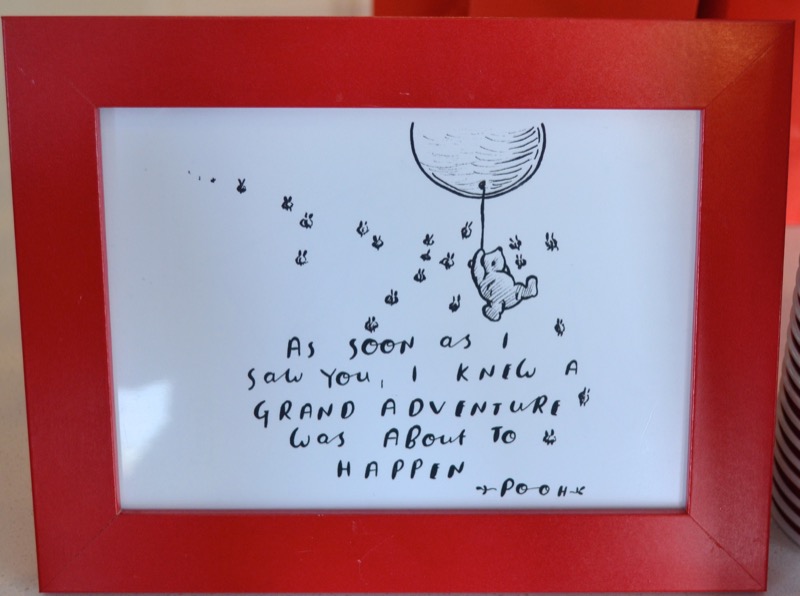 As SOON as I
Saw You, I KNEW A
GRAND ADVENTURE
Was ABout To
HAPPEN
POOH